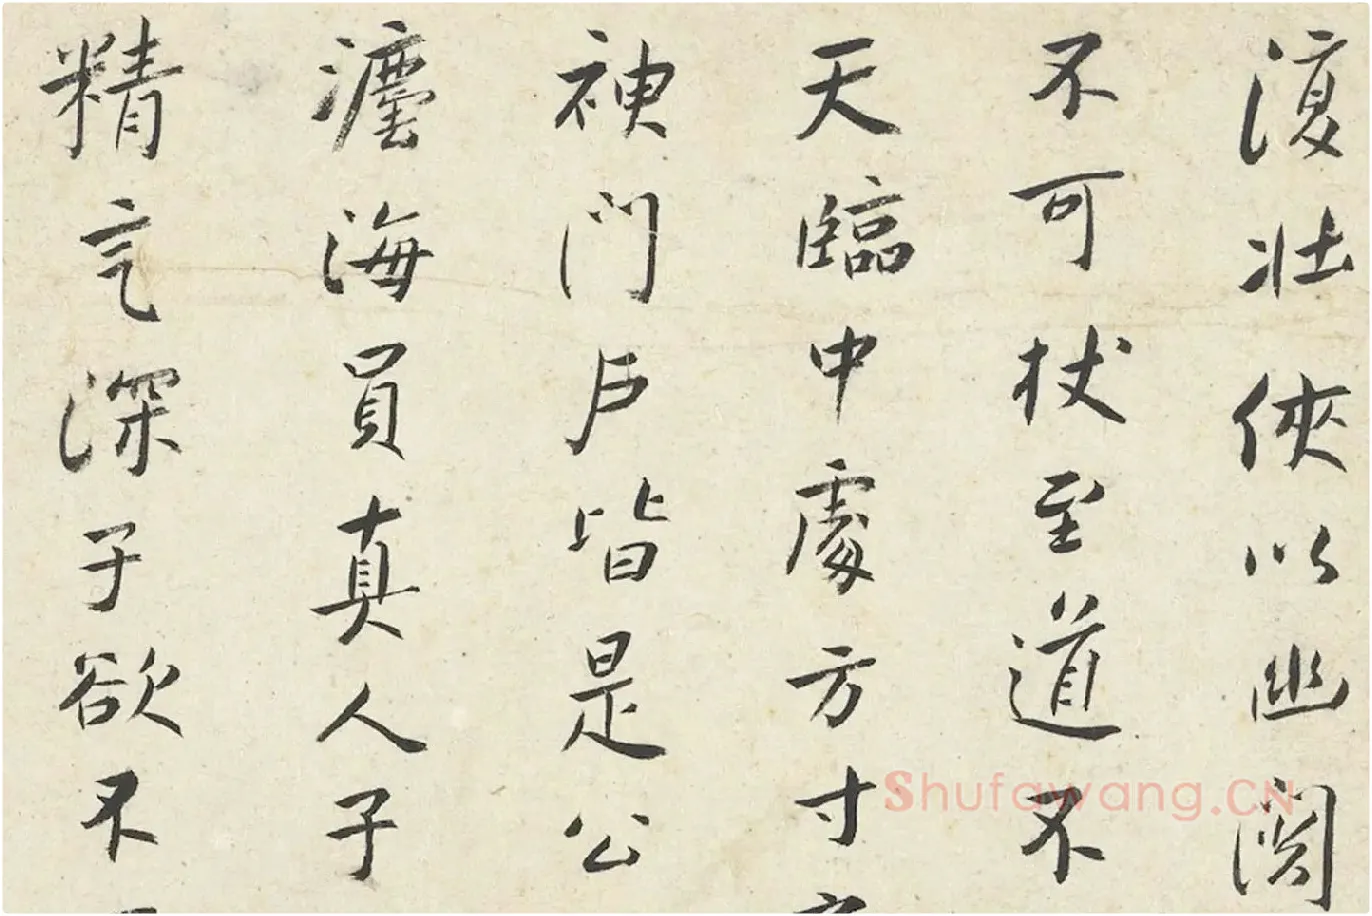 復壯俠以幽闕
不可杖至道不
天臨中處方寸
神門戶皆是公
灋海員真人子
精气深子欲不
Shufawang.CN